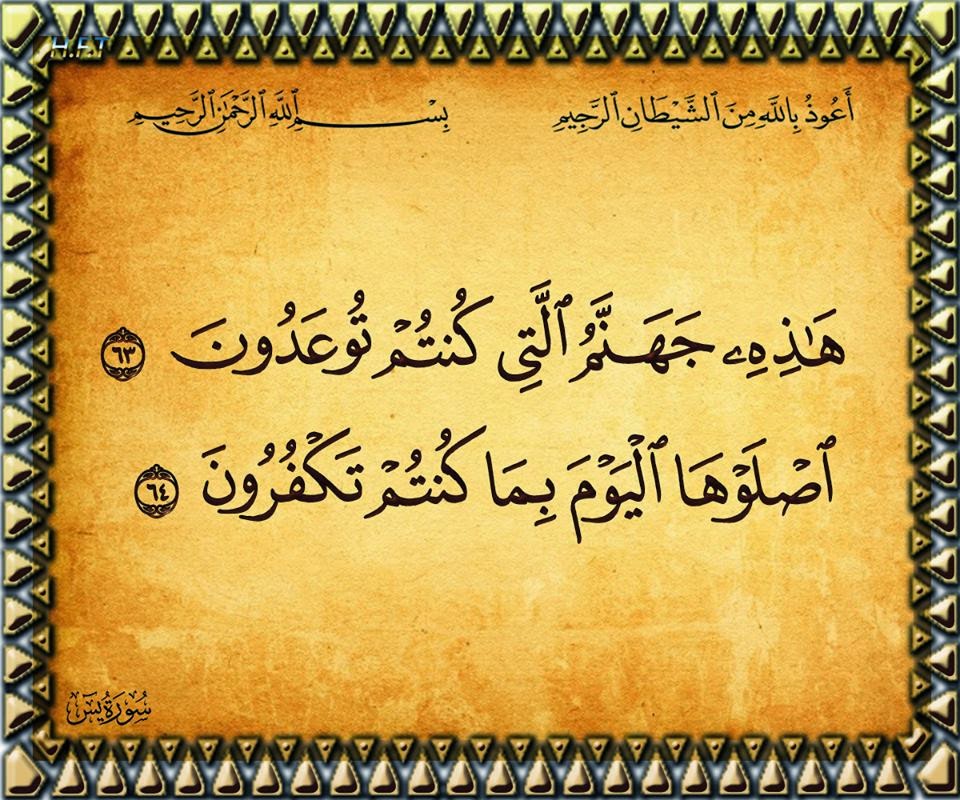 H.F.T
أَعُوذُ بِاللَّهِ مِنَ ٱلشَّيْطَانِ ٱلرَّجِيمِ بِسْمِ ٱللَّهِ ٱلرَّحْمَٰنِ ٱلرَّحِيمِ
هَـٰذِهِۦ جَهَنَّمُ ٱلَّتِى كُنتُمْ تُوعَدُونَ ٦٣
ٱصْلَوْهَا ٱلْيَوْمَ بِمَا كُنتُمْ تَكْفُرُونَ ٦٤
سُورَةُ يسٓ